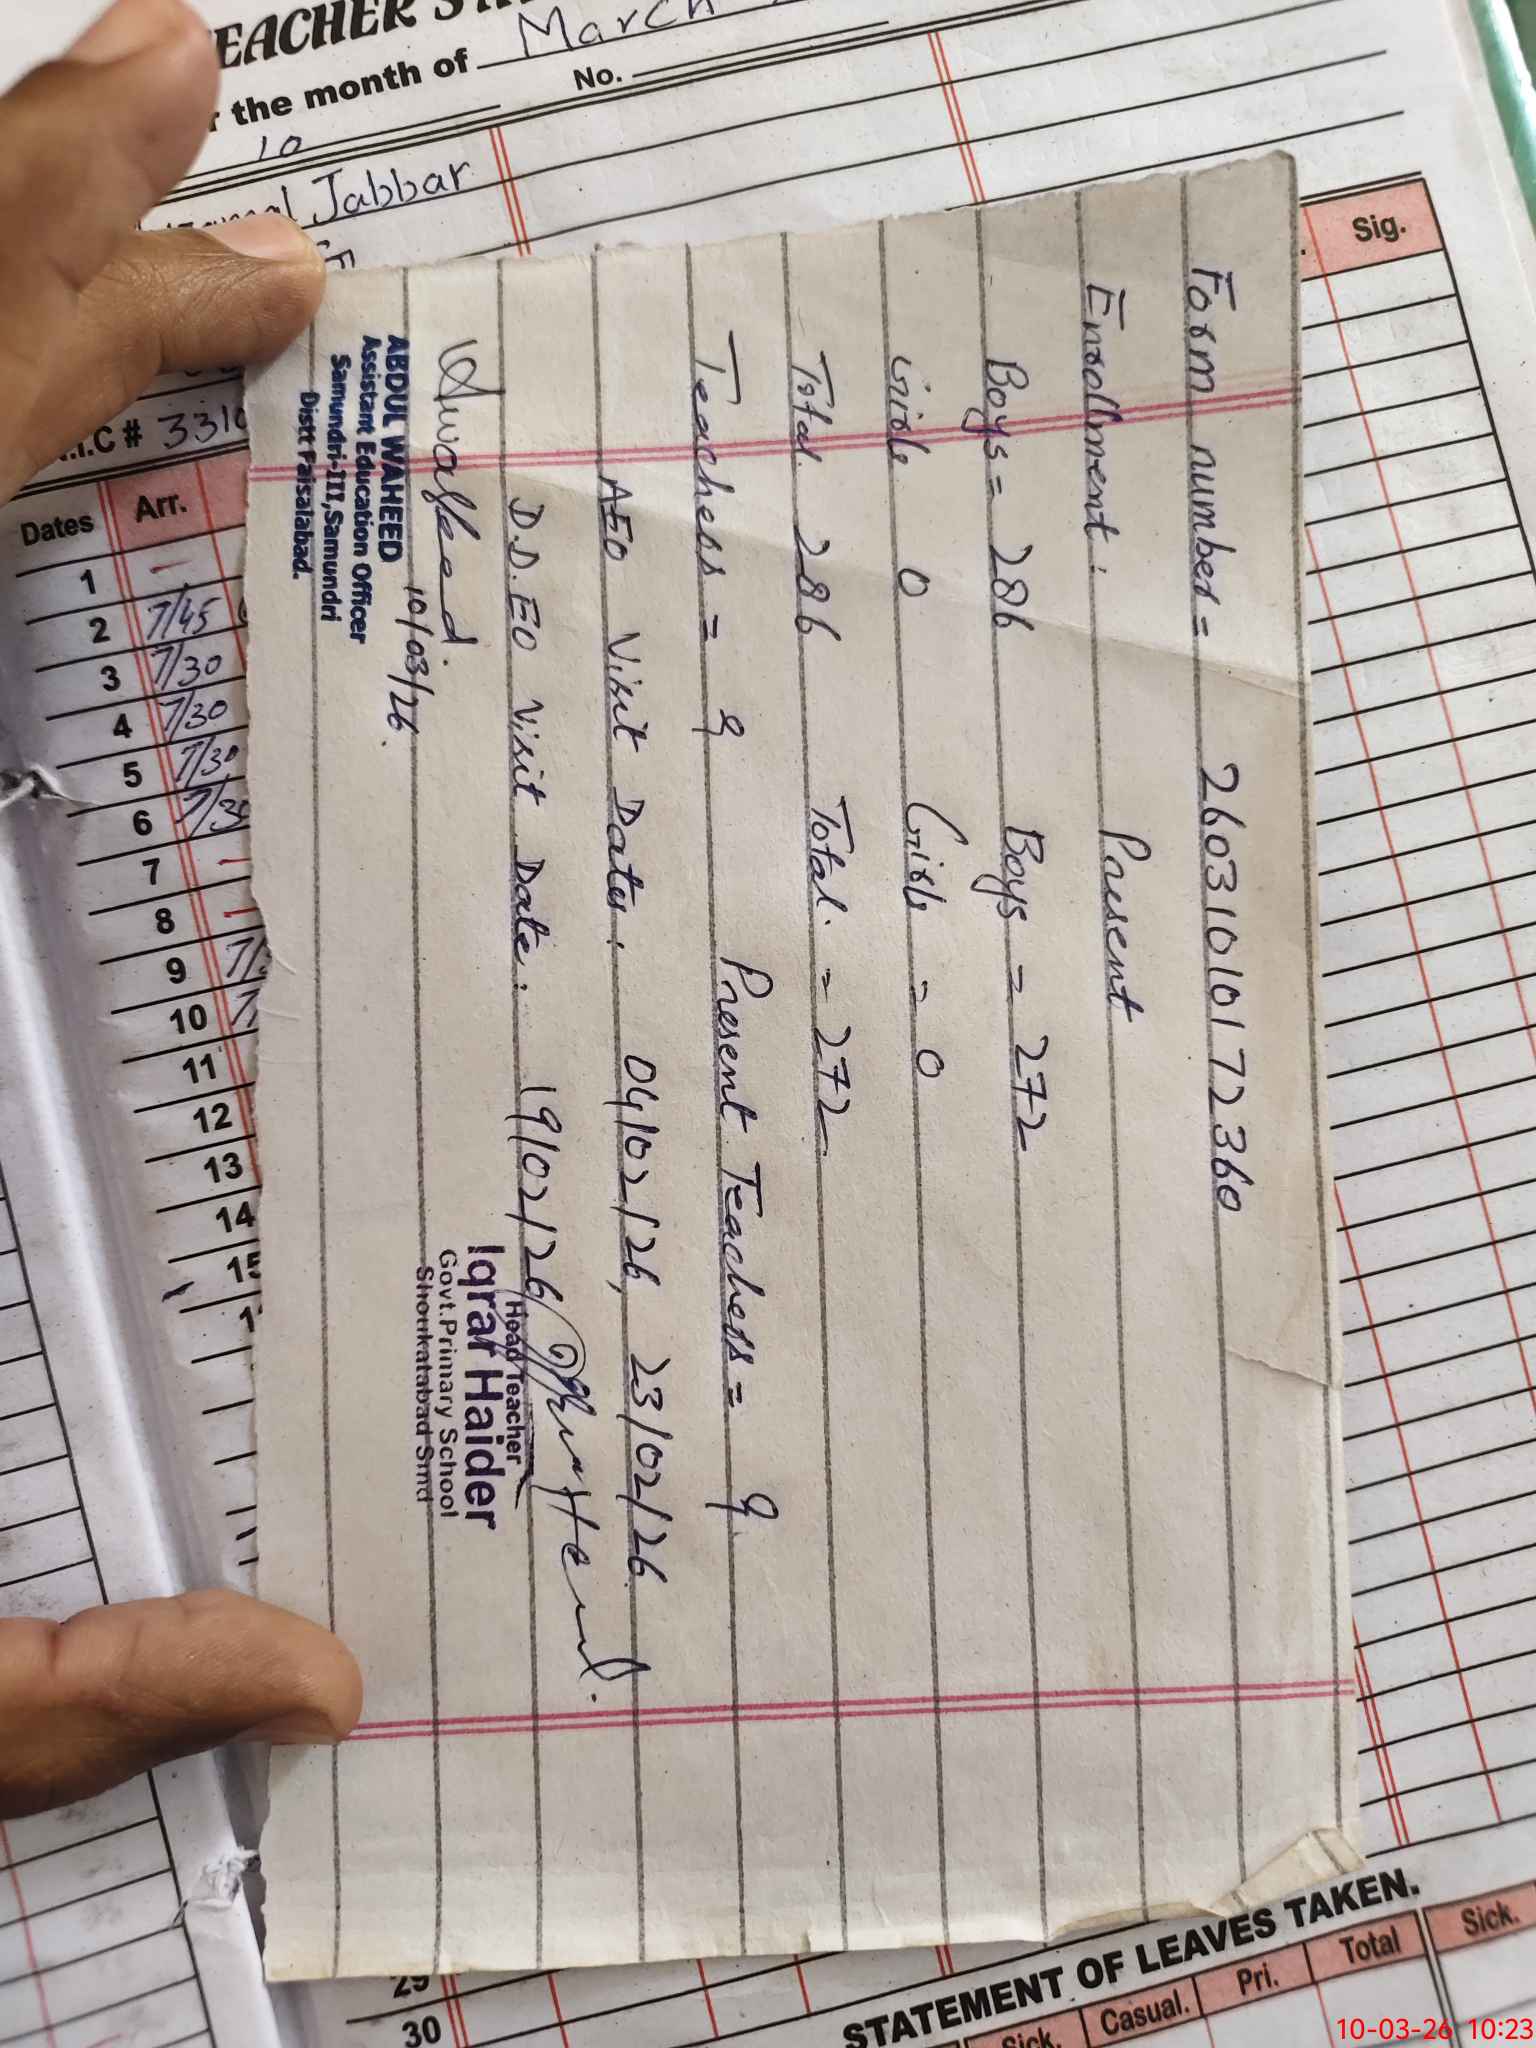 for the month of March
No.
10
Jabbar
Sig.
# 3310
Dates Arr.
1
2 7/45
3 7/30
4 7/30
5 7/30
6
7
8
9
10
11
12
13
14
15
Form number = 26031010172360
Enrollment: Present
Boys = 286 Boys = 272
Girls 0 Girls = 0
Total 286 Total = 272
Teachers = 9 Present Teachers = 9
AEO Visit Dates: 04/02/26, 23/02/26
D.D.EO Visit Date: 19/02/26
10/03/26
ABDUL WAHEED
Assistant Education Officer
Samundri-III, Samundri
Distt Faisalabad.
Head Teacher
Iqrar Haider
Govt. Primary School
Shoukatabad Smd
29
30
STATEMENT OF LEAVES TAKEN.
Sick. Casual. Pri. Total Sick.
10-03-26 10:23